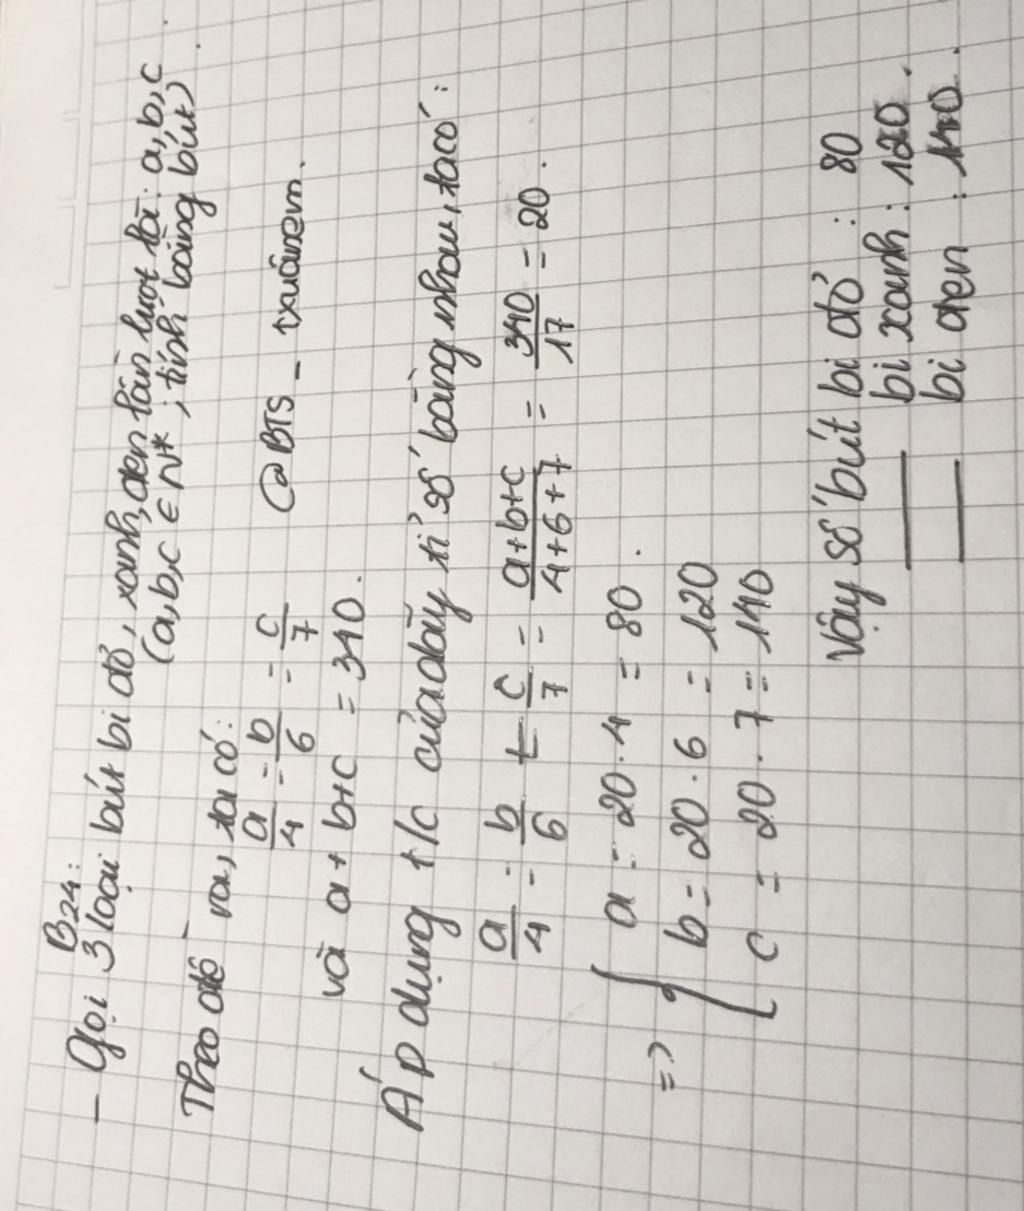 B24:
- Gọi 3 loại bút bi đỏ, xanh, đen lần lượt là: a, b, c
(a, b, c ∈ N* ; tính bằng bút).
Theo đề ra, ta có:
a/4 = b/6 = c/7
@BTS_txuânem.
và a + b + c = 340.
Áp dụng t/c của dãy tỉ số bằng nhau, ta có:
a/4 = b/6 = c/7 = (a+b+c)/(4+6+7) = 340/17 = 20.
=> { a = 20 . 4 = 80.
b = 20 . 6 = 120
c = 20 . 7 = 140
Vậy số bút bi đỏ : 80
— bi xanh : 120.
— bi đen : 140.